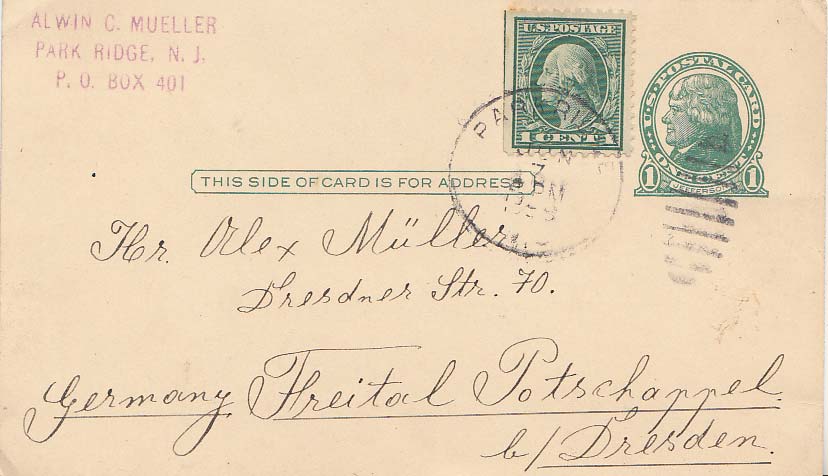 ALWIN C. MUELLER
PARK RIDGE, N. J.
P. O. BOX 401
U.S. POSTAGE
1 CENT 1
U.S. POSTAL CARD
1 1
JEFFERSON
PARK
JUN
7
PM
THIS SIDE OF CARD IS FOR ADDRESS
Hr. Alex Müller
Dresdner Str. 70.
Germany Freital Potschappel
b/Dresden.